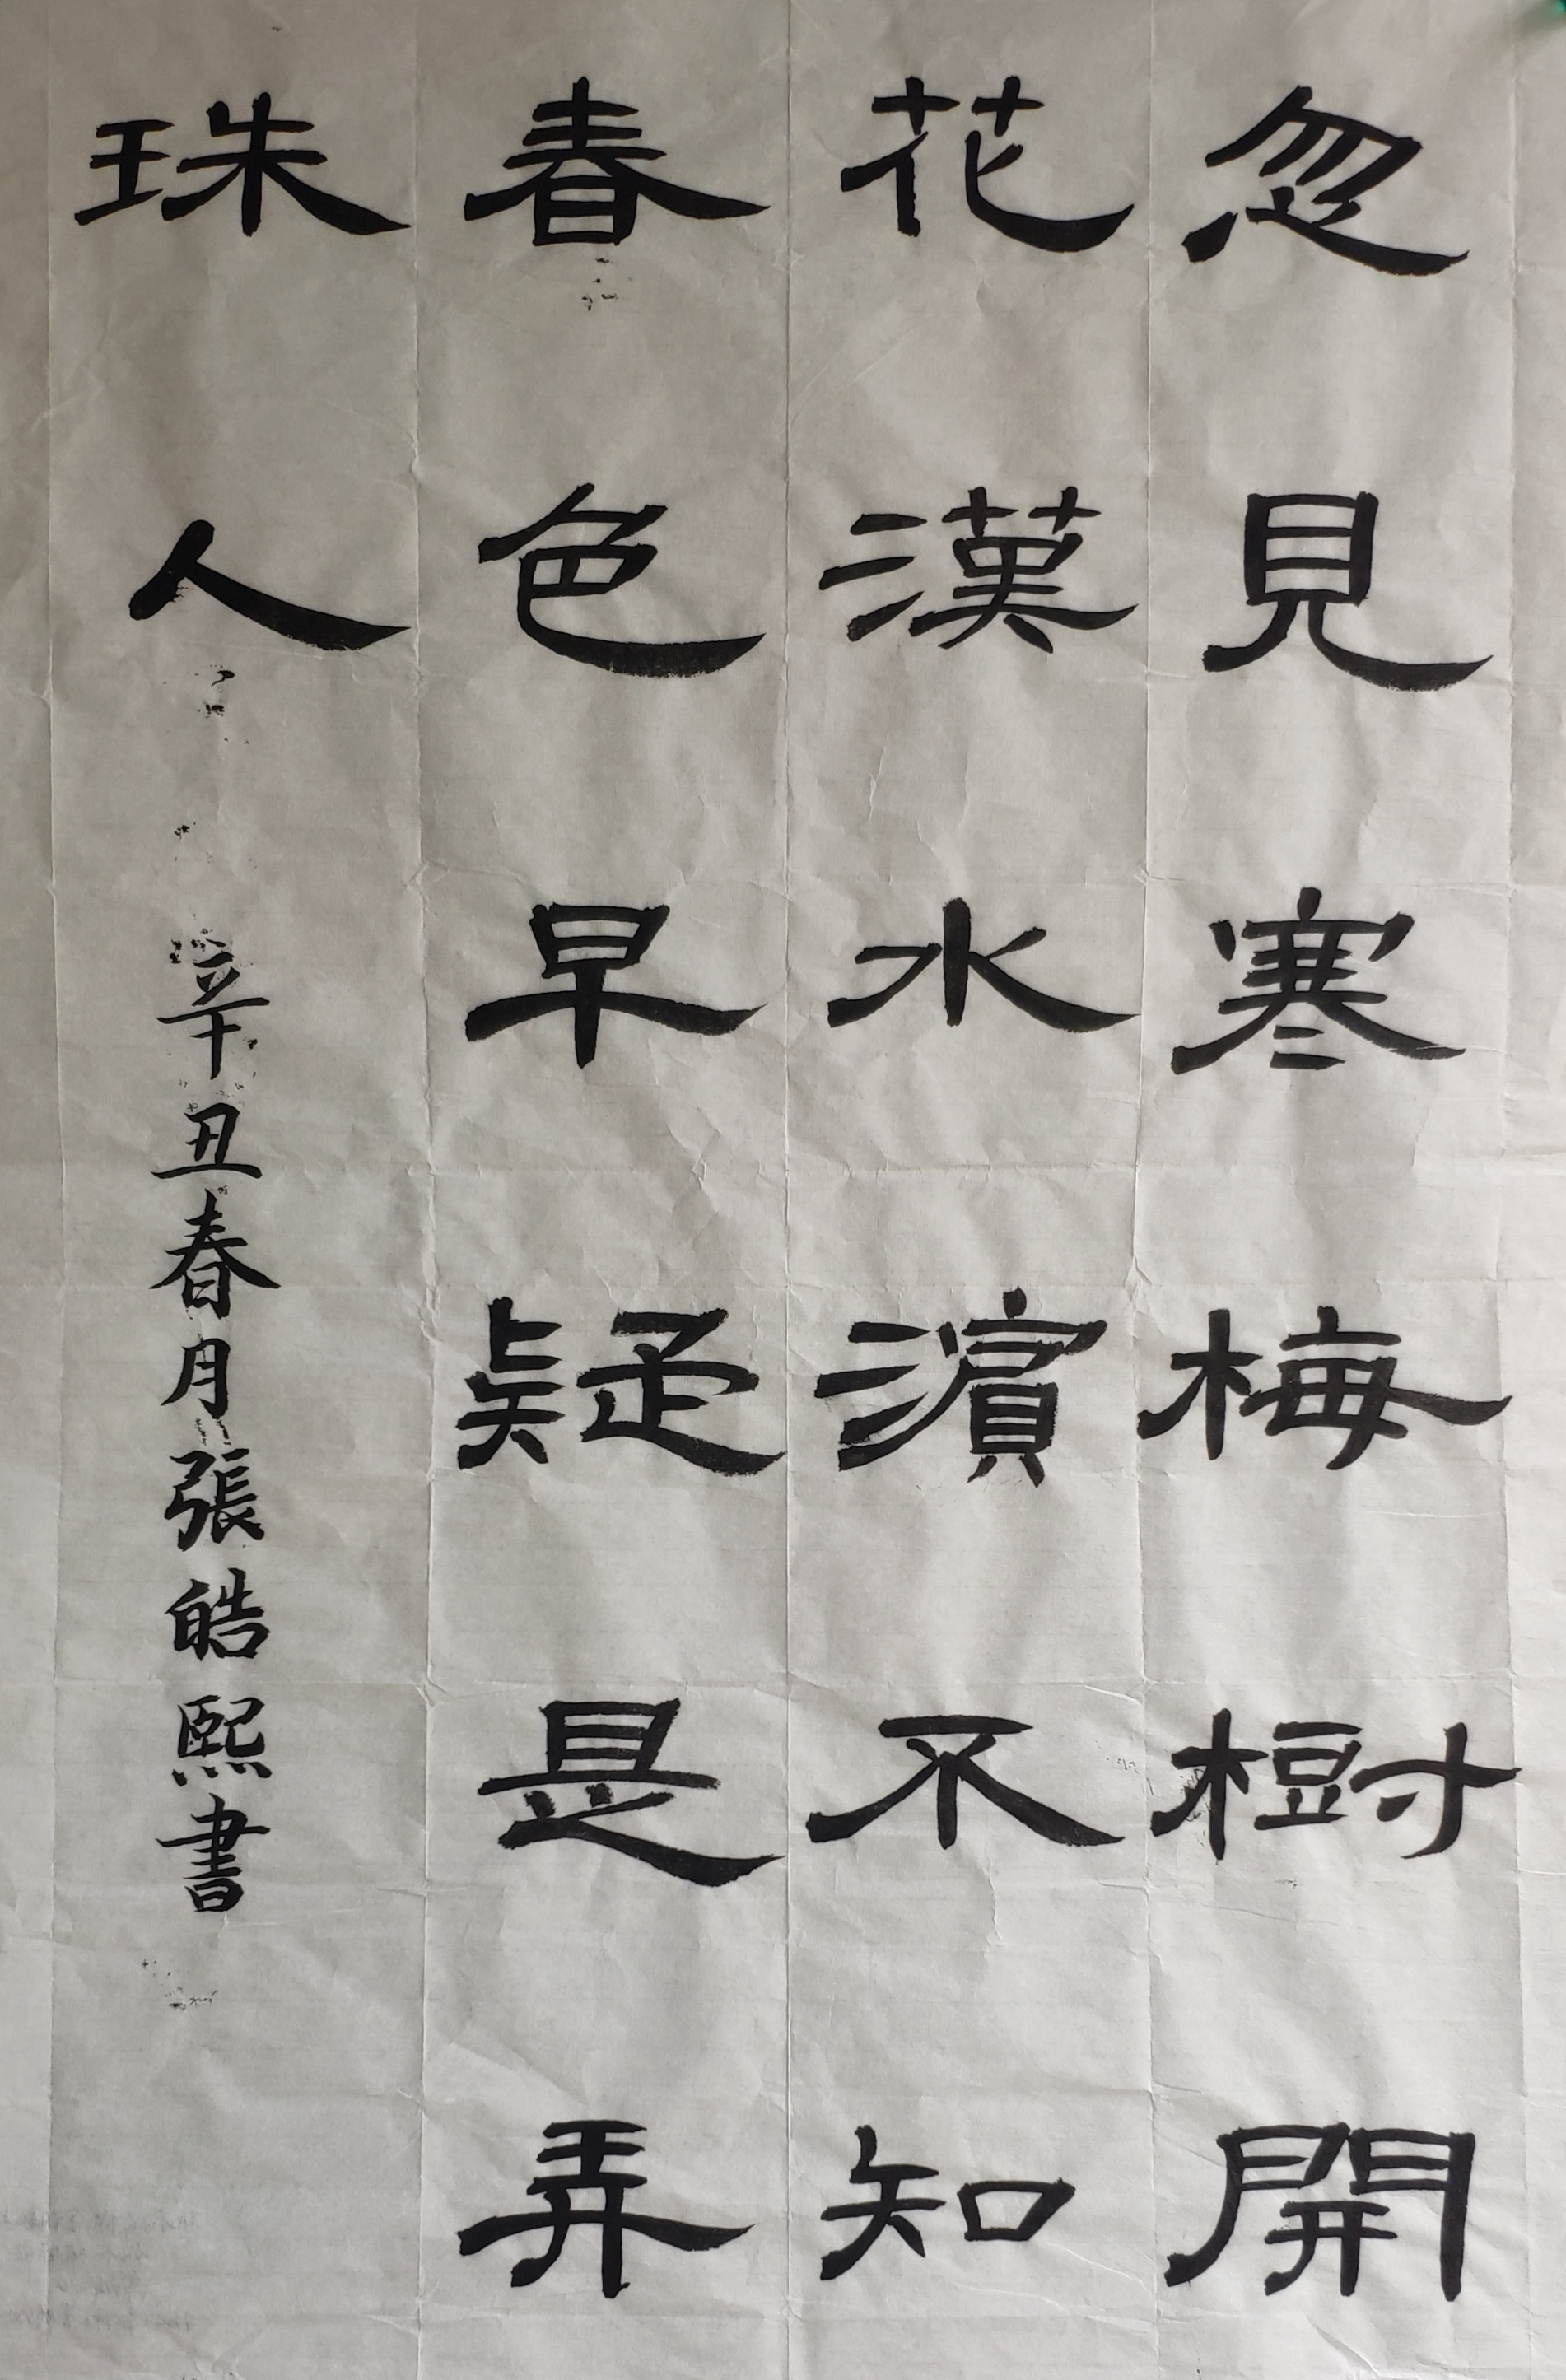 忽見寒梅樹開
花漢水濱不知
春色早疑是弄
珠人
辛丑春月張皓熙書